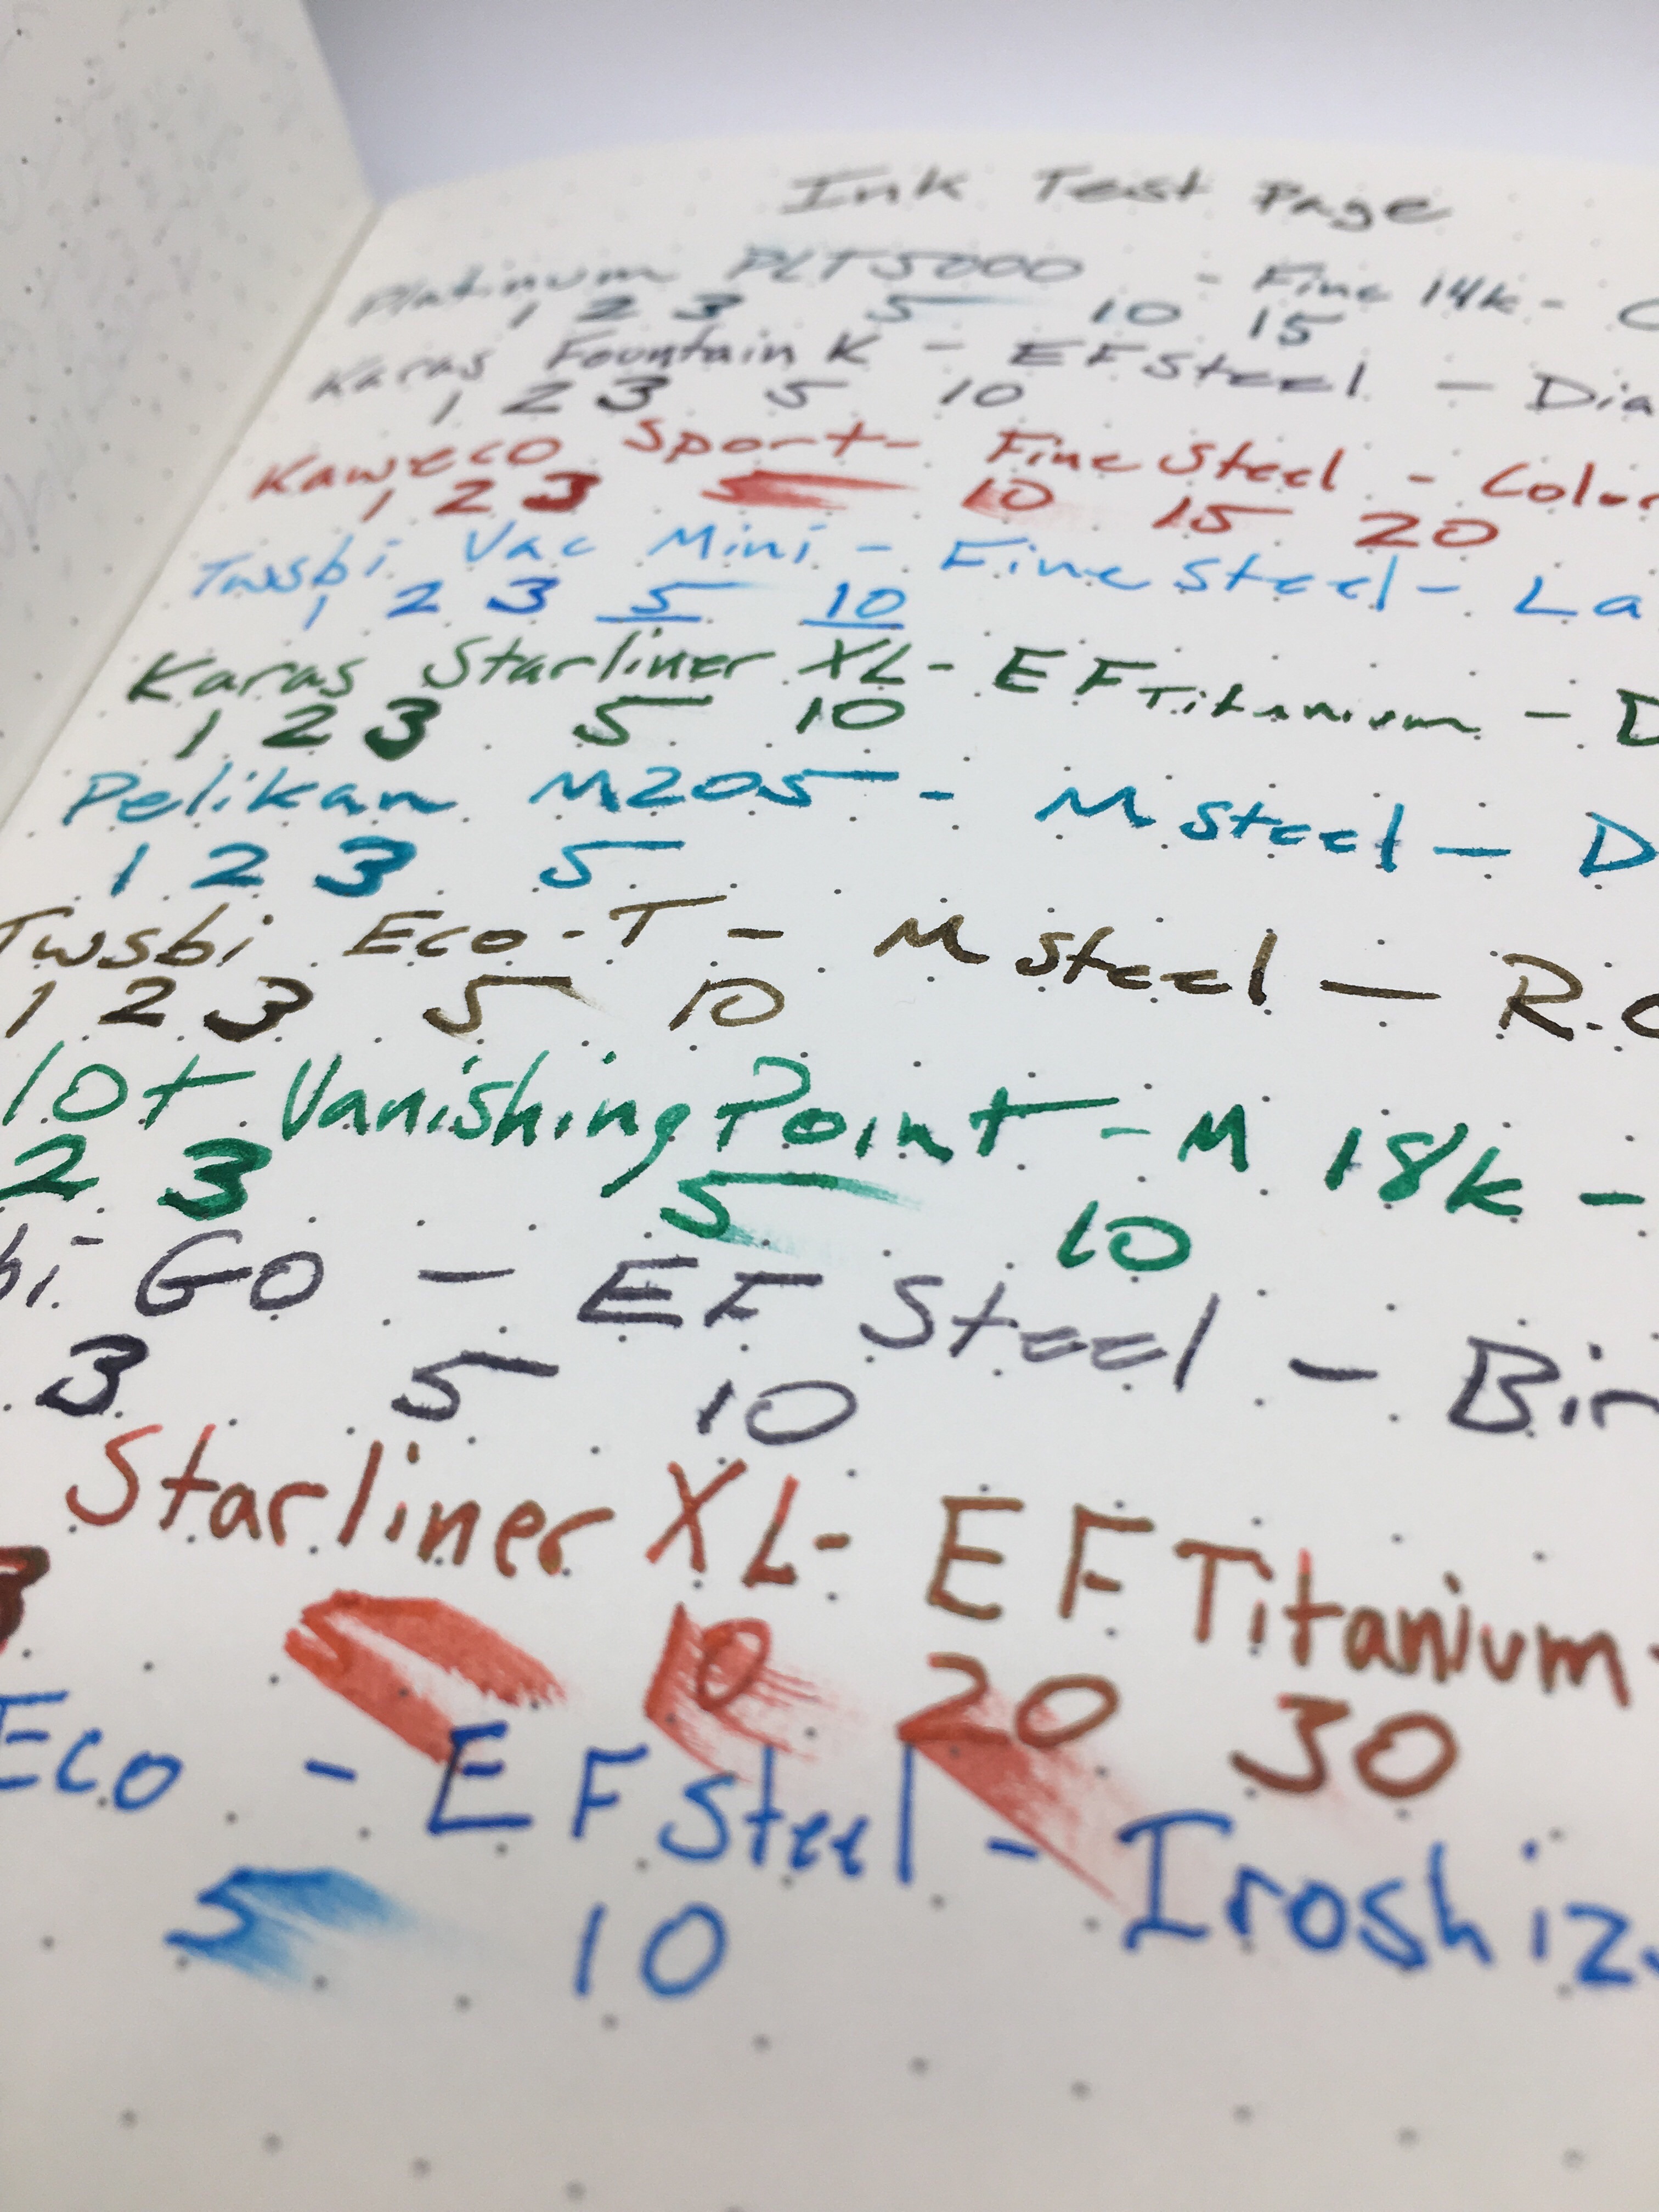 Ink Test Page
Platinum PLT5000 - Fine 14k - C
1 2 3 5 10 15
Karas Fountain K - EF Steel - Dia
1 2 3 5 10
Kaweco Sport - Fine Steel - Color
1 2 3 5 10 15 20
Twsbi Vac Mini - Fine Steel - La
1 2 3 5 10
Karas Starliner XL - EF Titanium - D
1 2 3 5 10
Pelikan M205 - M Steel - D
1 2 3 5
Twsbi Eco-T - M Steel - R.O
1 2 3 5 10
lot Vanishing Point - M 18k -
2 3 5 10
bi GO - EF Steel - Bir
3 5 10
Starliner XL - EF Titanium -
3 10 20 30
Eco - EF Steel - Iroshiz
5 10